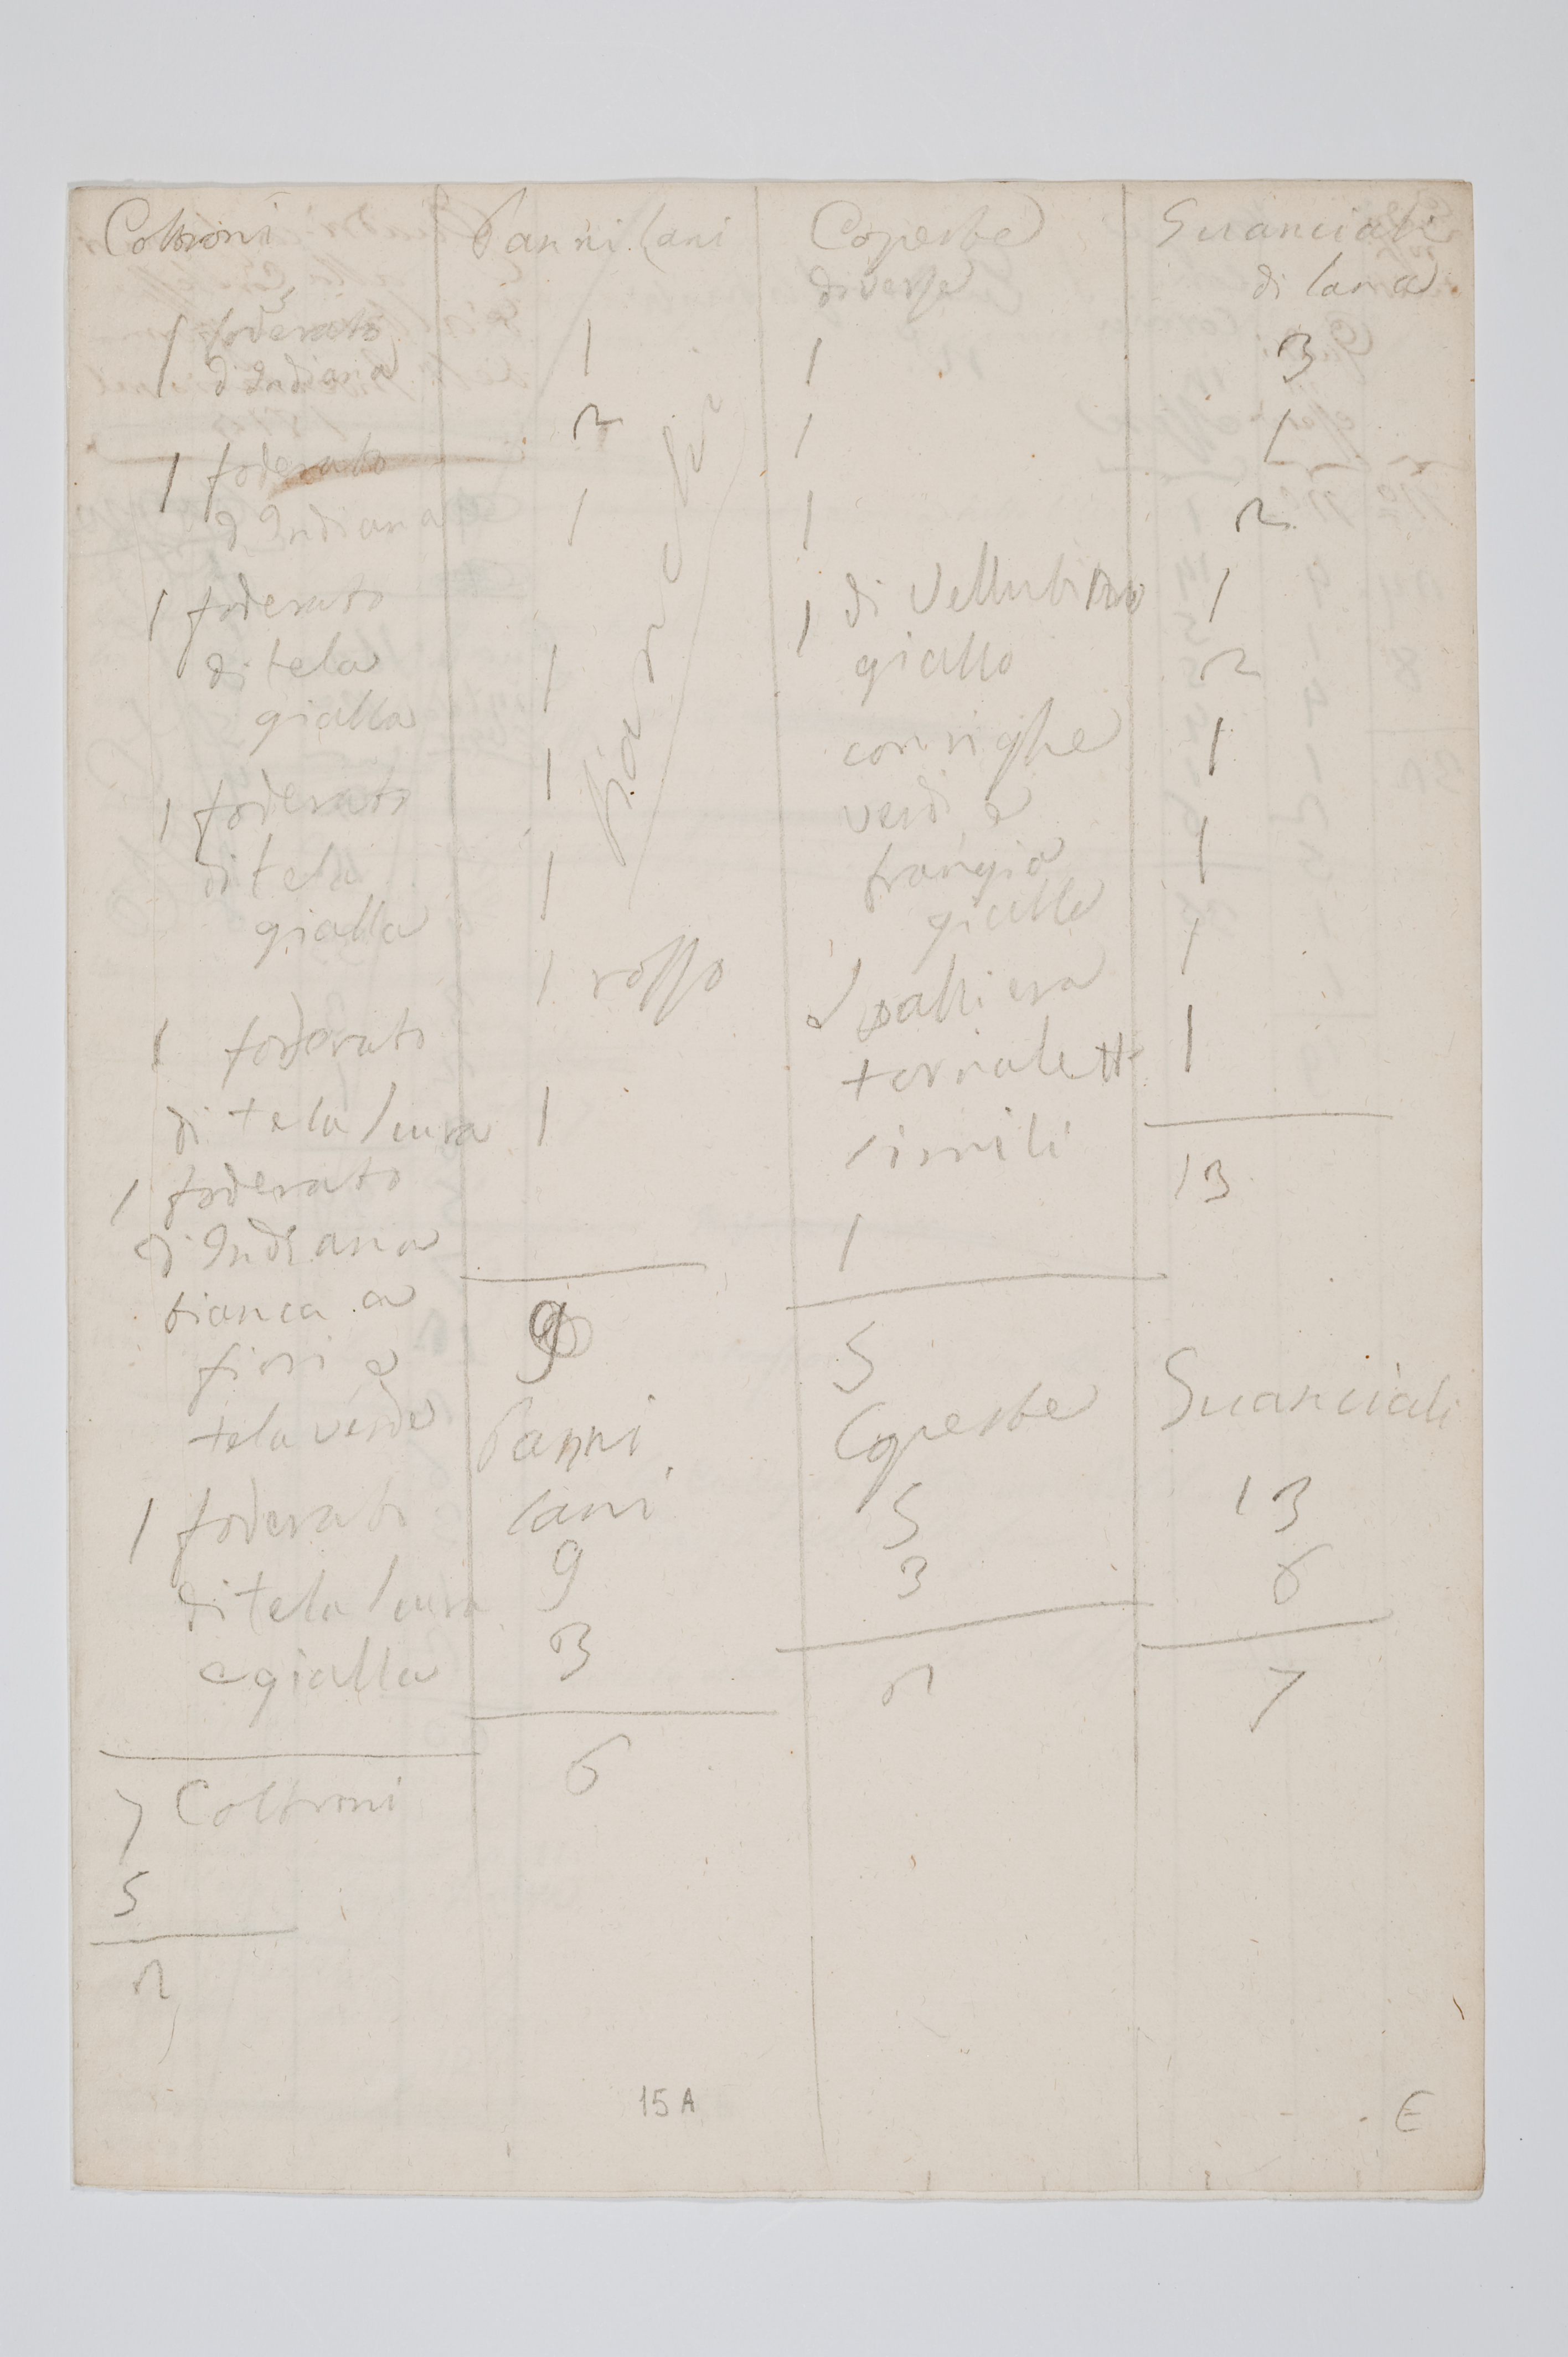 Coltroni
1 foderato
d'Indiana
1 foderato
d'Indiana
1 foderato
di tela
gialla
1 foderato
di tela
gialla
1 foderato
di tela scura
1 foderato
di Indiana
bianca a
fiori e
tela verde
1 foderato
di tela scura
e gialla
7 Coltroni
5
2
Panni lani
1
2
1
1
1
1
1 rosso
1
bianchi
9
Panni
lani
9
3
6
Coperte
diverse
1
1
1
1 di Vellutino
giallo
con righe
verdi e
frangia
gialla
e spalliera
tornaletti
simili
1
5
Coperte
5
3
2
Guanciali
di lana
3
1
2
1
2
1
1
1
1
13
Guanciali
13
6
7
15 A
E